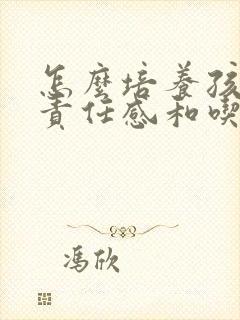 怎麼培養孩
責任感和喫
馮欣